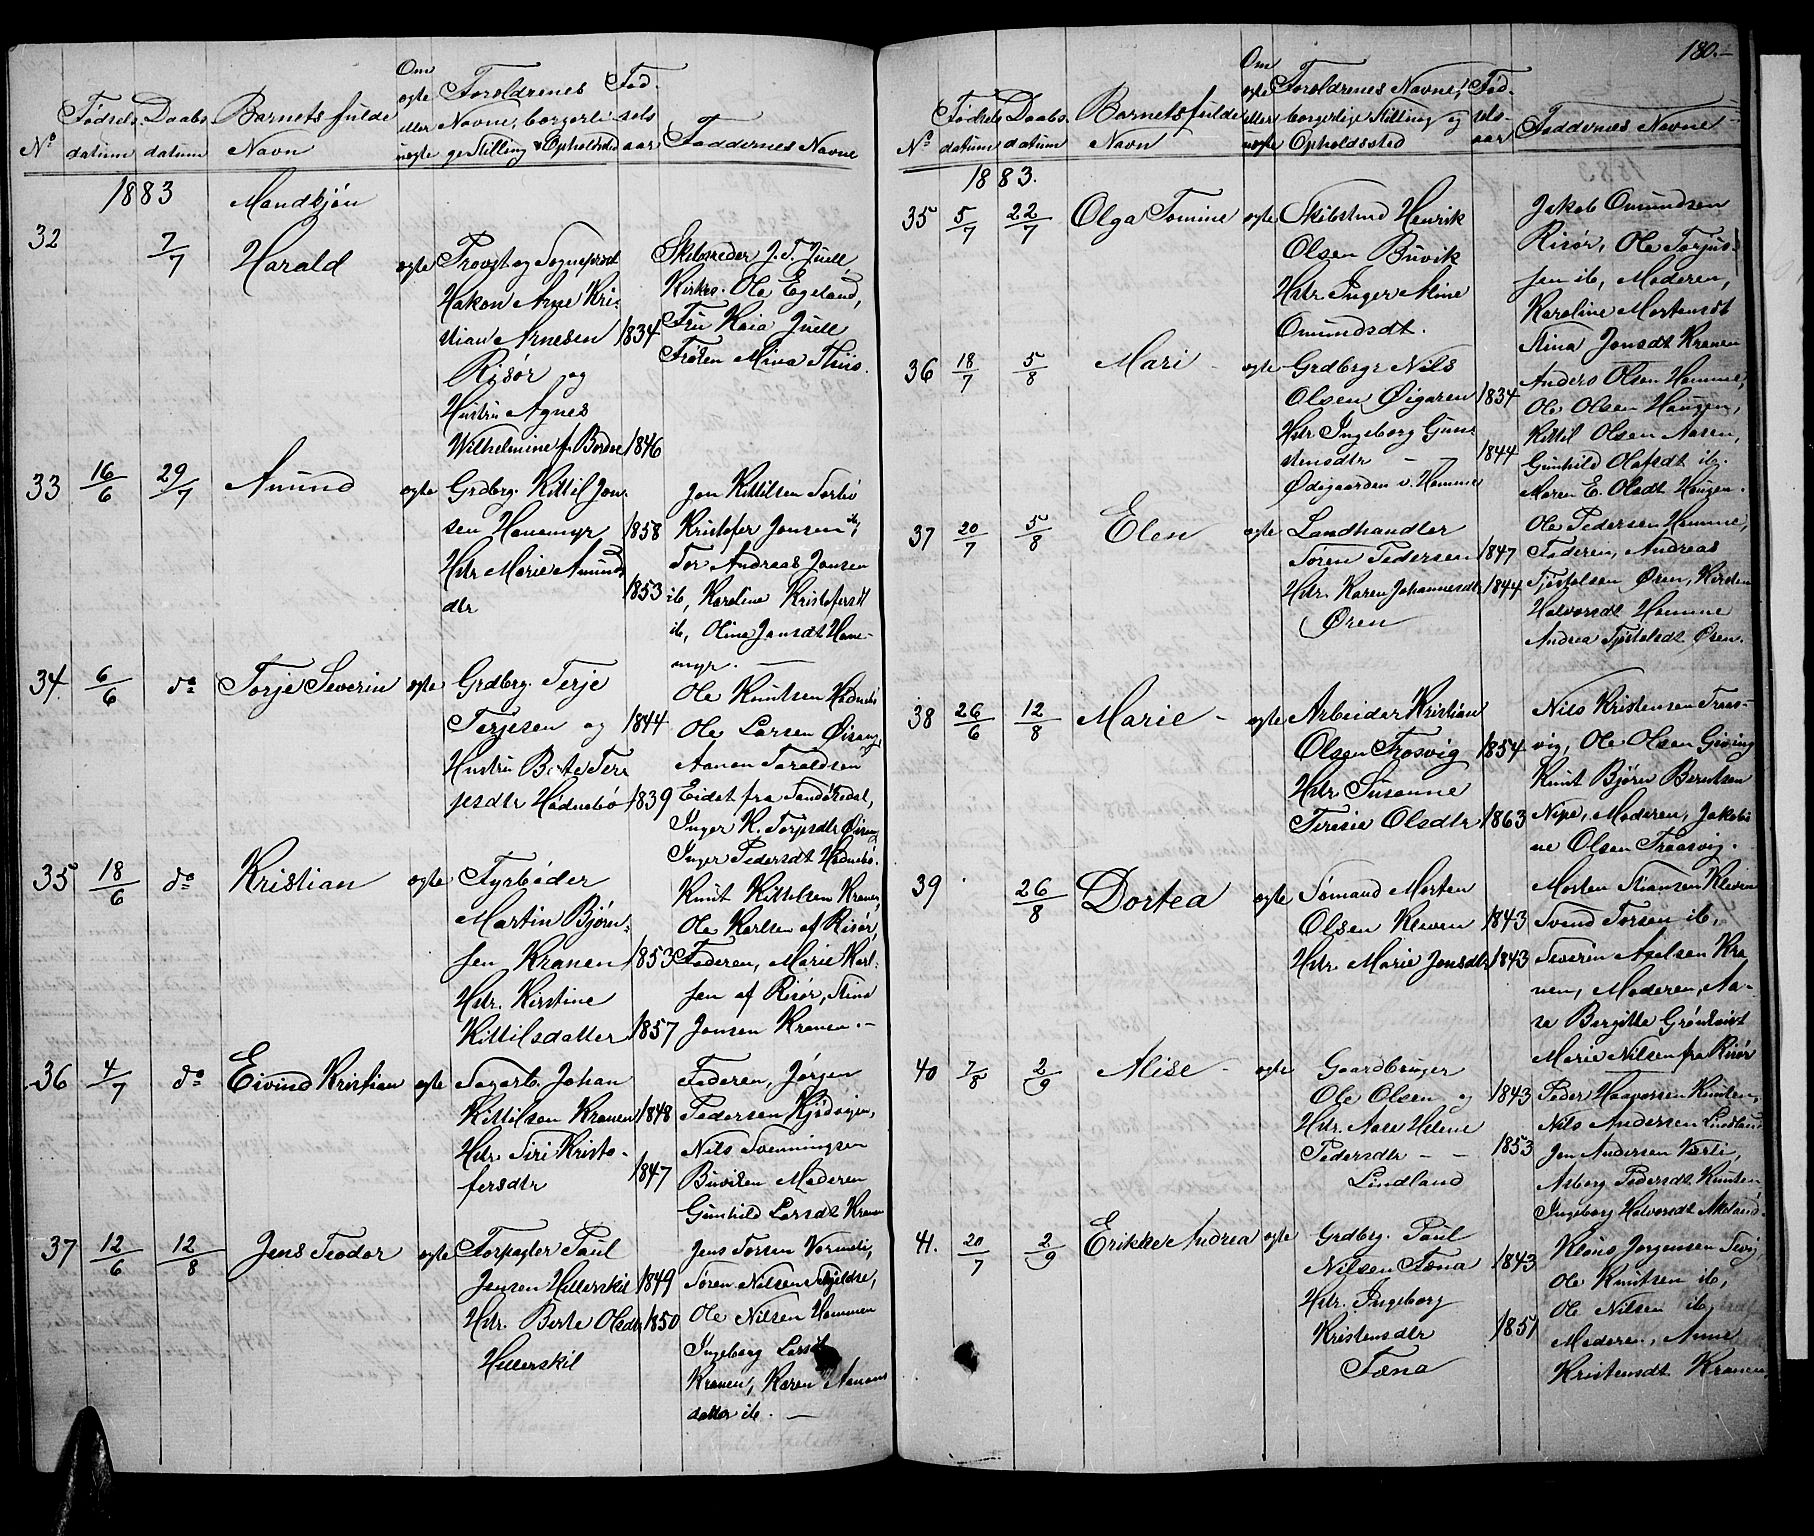 180.
No
Fødsels-
datum
Daabs-
datum
Barnets fulde
Navn
Om
ægte
eller
uægte
Foreldrenes
Navne, borgerli-
ge Stilling & Opholdsted
Fød-
sels
aar
Faddernes Navne
1883 Mandkjøn
32 7/7 Harald ægte
Provst og Sogneprest
Hakon Arne Kri-
stian Arnesen 1834
Risør og
Hustru Agnes
Wilhelmine f. 1846
Skibsreder J. T. Juell
Kirkes. Ole Egeland,
Fru Kaia Juell
Frøken Mina Thiis.
33 16/6 29/7 Amund ægte
Grdbrg. Kittil Jon-
sen Hanemyr 1858
Hstr Marie Amunds
dtr 1853
Jon Kittilsen
Kristofer Jonsen ib,
Tor Andreas Jonsen
ib, Karoline Kristofersdt
ib, Olina Jonsdt Hane-
myr.
34 6/6 do Torje Severin ægte
Grdbrg. Terje
Terjesen og 1844
Hustru Berte Ter-
jesdtr Hødnebø 1839
Ole Knutsen Hødnebø
Ole Larsen Øisang
Aanon Taraldsen
Eidet fra Søndeled,
Inger K. Torjusdtr Øisang
Inger Pedersdt Hødnebø.
35 18/6 do Kristian ægte
Fyrbøder
Martin Bjørn-
sen, Kranen 1853
Hstr. Kirstine
Kittilsdatter 1857
Knut Kittelsen Kranen,
Ole Karlsen af Risør,
Faderen, Marie Karl-
sen af Risør, Stine
Jonsen Kranen.
36 4/7 do Eivind Kristian ægte
Sagarb. Johan
Kittilsen Kranen 1848
Hstr. Siri Kristo-
fersdtr 1847
Faderen, Jørgen
Pedersen
Nils Svenningsen
Buviken Moderen
Gunhild Larsdt Kranen
37 12/6 12/8 Jens Teodor ægte
Forpagter Paul
Jensen Hellerskil 1849
Hstr. Berte Olsdtr 1850
Hellerskil
Jens Torsen Vormeli,
Søren Nilsen
Ole Nilsen Hommen
Ingeborg Larsdt
Kranen, Karen Aanons
datter ib.
No
Fødsels
datum
Daabs-
datum
Barnets fulde
Navn
Om
ægte
eller
uægte
Foreldrenes Navne,
borgerlige Stilling og
Opholdssted
Fød-
sels-
aar
Faddernes Navne
1883.
35 5/7 22/7 Olga Tomine ægte
Skibstmd Henrik
Olsen Buvik
Hstr. Inger Aline
Omundsdt.
Jakob Omundsen
Risør, Ole Torjus-
sen ib, Moderen,
Karoline Mortensdt
Stina Jonsdt Kranen
36 18/7 5/8 Mari ægte
Grdbrgr Nils
Olsen Øigaren 1834
Hstr Ingeborg Gun-
stensdtr 1844
Ødegaarden v. Homme
Anders Olsen Homme,
Ole Olsen Haugen,
Kittil Olsen Aasen,
Gunhild Olafsdt ib.
Maren E. Olsdt Haugen.
37 20/7 5/8 Elen ægte
Landhandler
Søren Pedersen 1847
Hstr. Karen Johannesdtr 1844
Øren
Ole Pedersen Homme,
Faderen, Andreas
Tjøstolsen Øren, Kirsten
Halvorsdt Homme
Andrea Tjøstolsdt Øren.
38 26/6 12/8 Marie ægte
Arbeider Kristian
Olsen Frosvig 1854
Hstr. Susanne
Teresie Olsdtr 1863
Nils Kristensen Fraas-
vig, Ole Olsen Giving
Knut Bjørn Berntsen
Nipe, Moderen, Jakobi
ne Olsen Fraasvig.
39 26/8 Dortea ægte
Sømand Morten
Olsen Kleven 1843
Hstr. Marie Jensdtr 1843
Morten Stiansen Kleven
Svend Torsen ib,
Severin Axelsen Kra
nen, Moderen, Aa-
se Bergitte
Marie Nilsen fra Risør
40 7/8 2/9 Alise ægte
Gaardbruger
Ole Olsen og 1843
Hstr. Aase Helene
Pedersdtr 1853
Lindland
Peder Haavorsen
Nils Andersen Lindland
Jon Andersen
Asborg Pedersdt
Ingeborg Halvorsdt
41. 20/7 2/9 Erikke Andrea ægte
Grdbrg. Paul
Nilsen Fona 1843
Hstr. Ingeborg
Kristensdtr 1857
Fona
Jørgensen
Ole Knutsen ib,
Ole Nilsen ib,
Moderen, Anne
Kristensdt Kranen